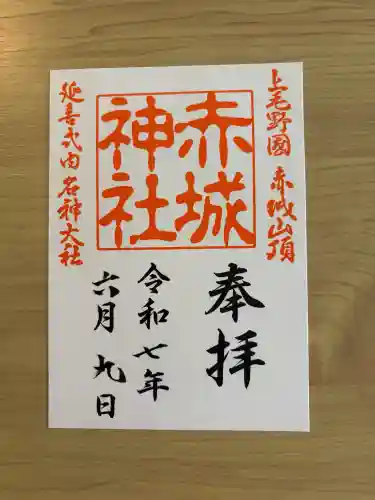 上毛野國 赤城山頂
赤城
神社
延喜式内 名神大社
奉拝
令和七年
六月九日